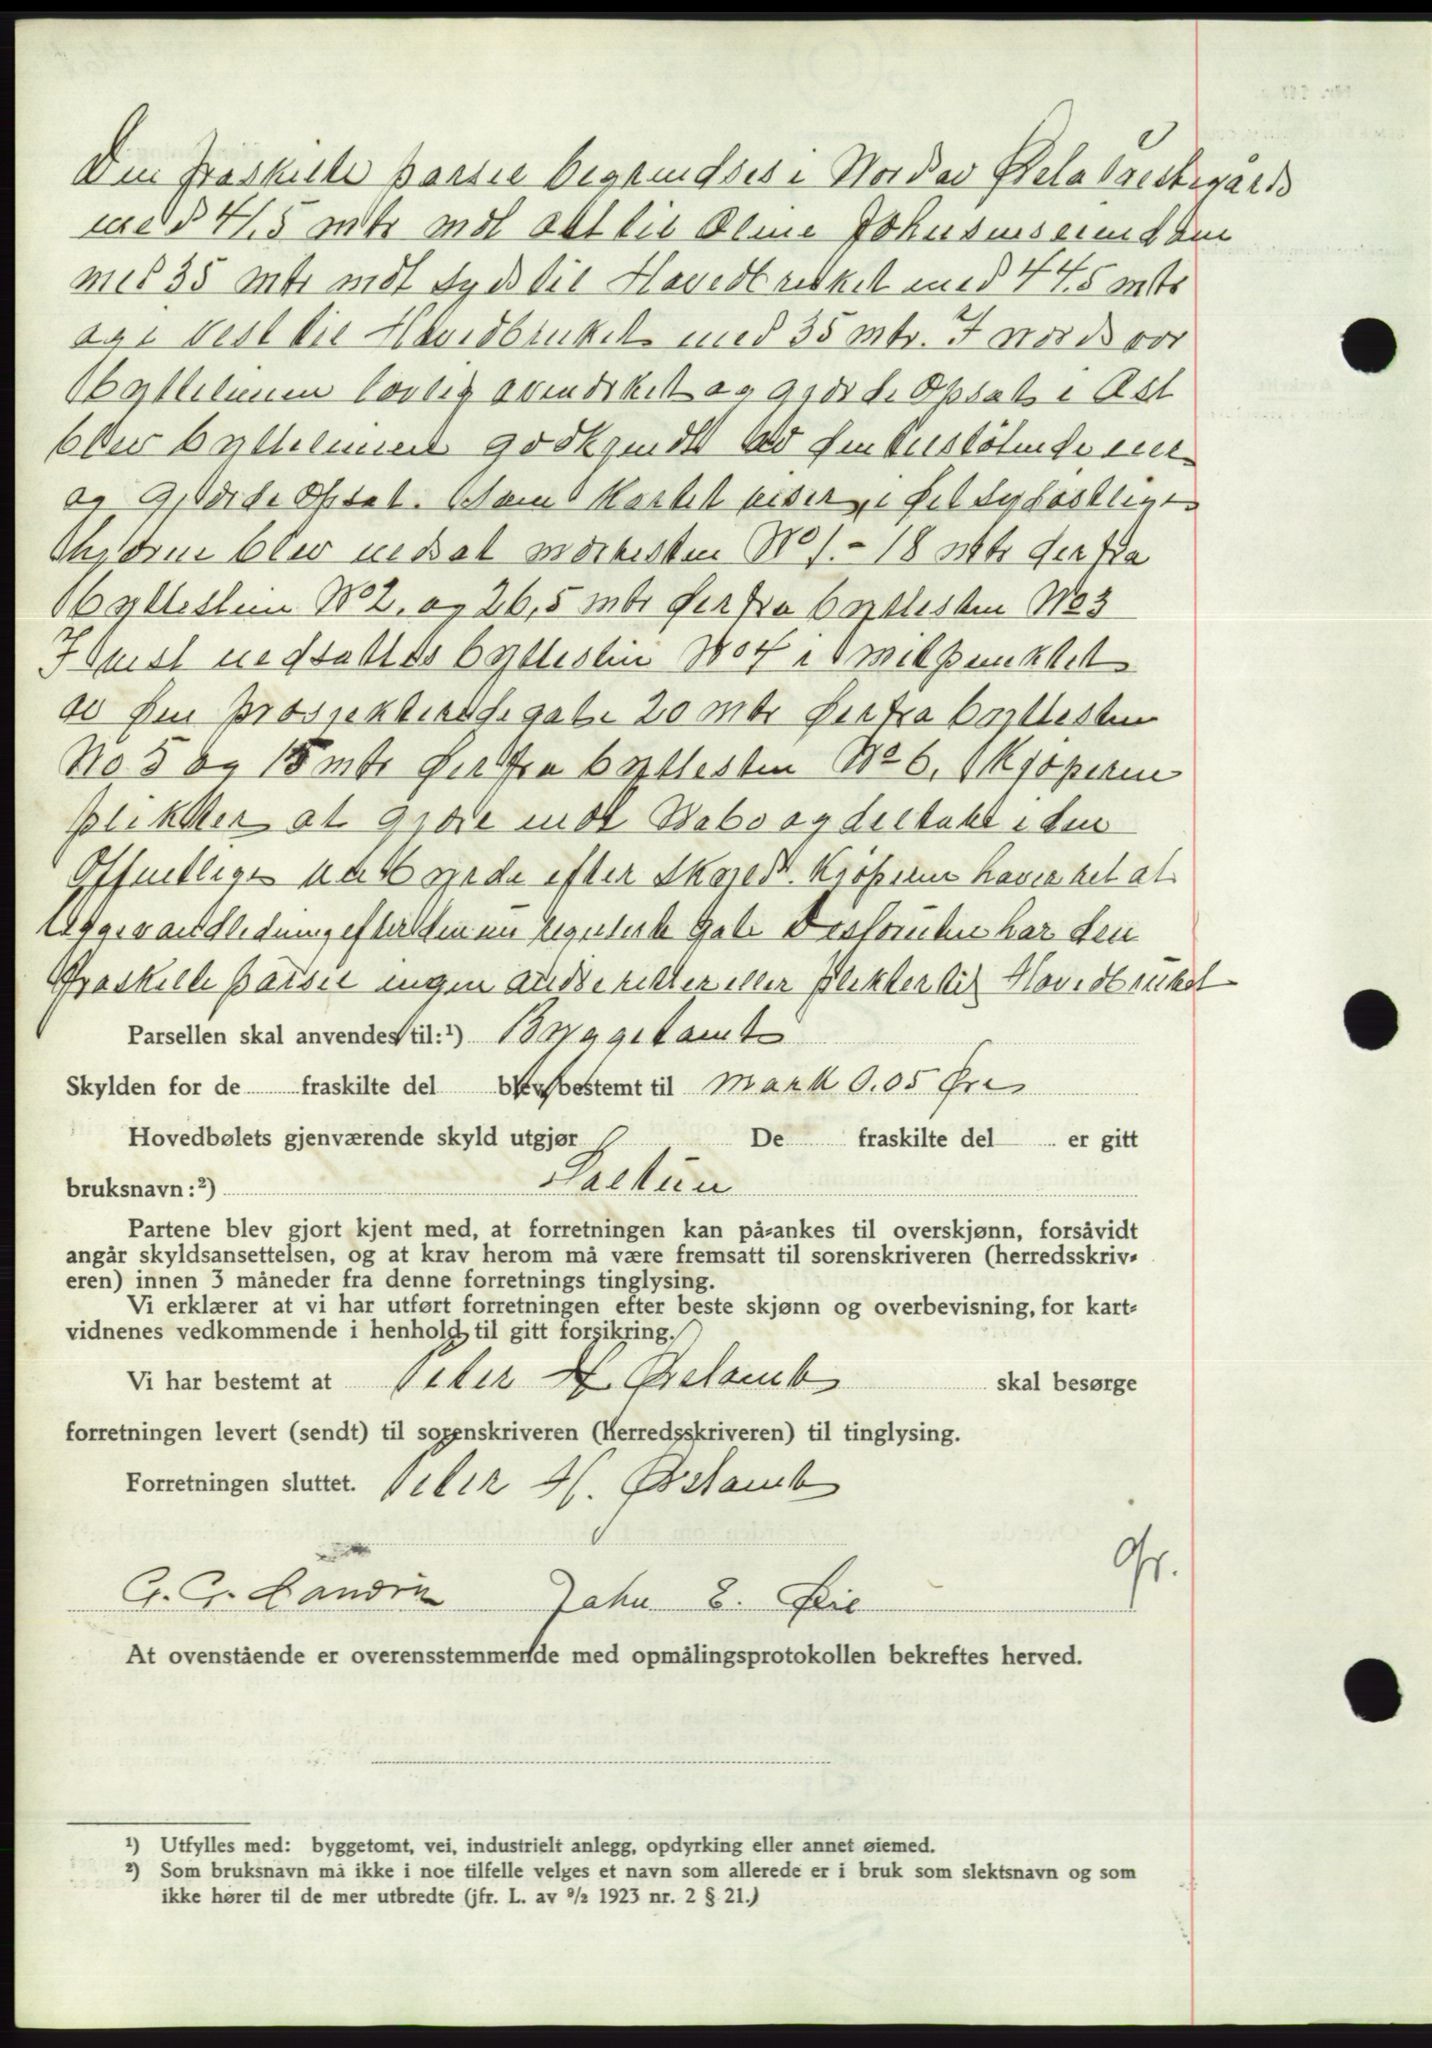 Den fraskilte parsel begrendses i Nord av Ørsta Prestegårds
med 41,5 mtr mot ost til Oline Johnsens eiendom
med 35 mtr mot syd til Hovedbruket med 44.5 mtr
og i vest til Hovedbruket med 35 mtr. I nord var
byttelinien lovlig avmerket og gjærde opsat i Ost
blev byttelinien godkjendt av den tilstøtende eier
og gjærde opsat. Som kartet viser, i det sydostlige
hjørne blev nedsat merkesten No 1. - 18 mtr derfra
byttestein No 2. og 26,5 mtr derfra byttesten No 3
I vest nedsattes byttestin No 4 i mitpunktet
av den prosjekterede gate 20 mtr derfra byttesten
No 5 og 15 mtr derfra byttesten No 6. Kjøperne
plikter at gjære mot Nabo og deltake i den
Offentlige utbyrde efter skyld. Kjøperne haver ret at
legge vandledning efter den nu regulerte gate Desforuten har den
fraskilte parsel ingen andre retter eller plikter til Hovedbruket
Parsellen skal anvendes til:¹) Byggetomt
Skylden for de fraskilte del blev bestemt til mark 0.05 Øre
Hovedbølets gjenværende skyld utgjør De fraskilte del er gitt
bruksnavn:²) Saltun
Partene blev gjort kjent med, at forretningen kan på-ankes til overskjønn, forsåvidt
angår skyldsansettelsen, og at krav herom må være fremsatt til sorenskriveren (herredsskriv-
eren) innen 3 måneder fra denne forretnings tinglysing.
Vi erklærer at vi har utført forretningen efter beste skjønn og overbevisning, for kart-
vidnenes vedkommende i henhold til gitt forsikring.
Vi har bestemt at Peter H. Ørstamb skal besørge
forretningen levert (sendt) til sorenskriveren (herredsskriveren) til tinglysing.
Forretningen sluttet. Peter H. Ørstamb
G. G. Landrø John E. Øie
At ovenstående er overensstemmende med opmålingsprotokollen bekreftes herved.
¹) Utfylles med: byggetomt, vei, industrielt anlegg, opdyrking eller annet øiemed.
²) Som bruksnavn må ikke i noe tilfelle velges et navn som allerede er i bruk som slektsnavn og som
ikke hører til de mer utbredte (jfr. L. av ⁹/₂ 1923 nr. 2 § 21.)